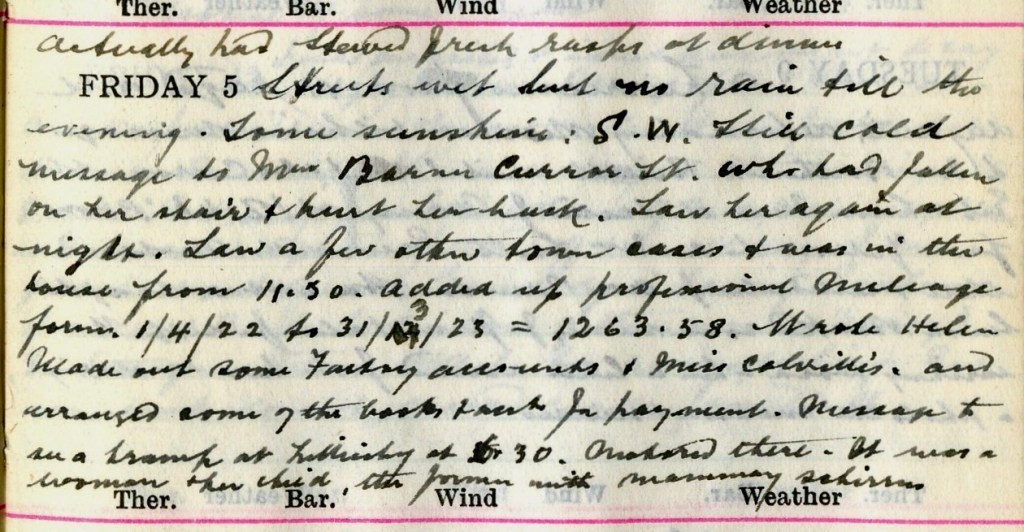 Ther. Bar. Wind Weather
actually had stewed fresh rasps at dinner
FRIDAY 5 Streets wet but no rain till the
evening. Some sunshine: S.W. Still cold
message to Mrs Barnes Curror St. who had fallen
on her stair & hurt her back. Saw her again at
night. Saw a few other town cases & was in the
house from 11.30. Added up professional Mileage
form. 1/4/22 to 31/3/23 = 1263.58. Wrote Helen
Made out some Factory accounts & Miss Colville's. and
arranged some of the books & for payment. Message to
see a tramp at at 30. Motored there. It was a
woman & her child the former with mammary schirrus
Ther. Bar. Wind Weather